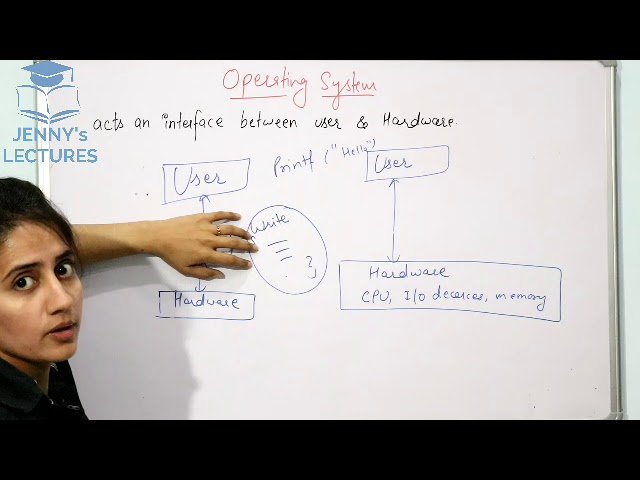 JENNY's
LECTURES
Operating System
acts an interface between user & Hardware.
User
Printf ("Hello")
User
Write
Hardware
Hardware
CPU, I/O devices, memory